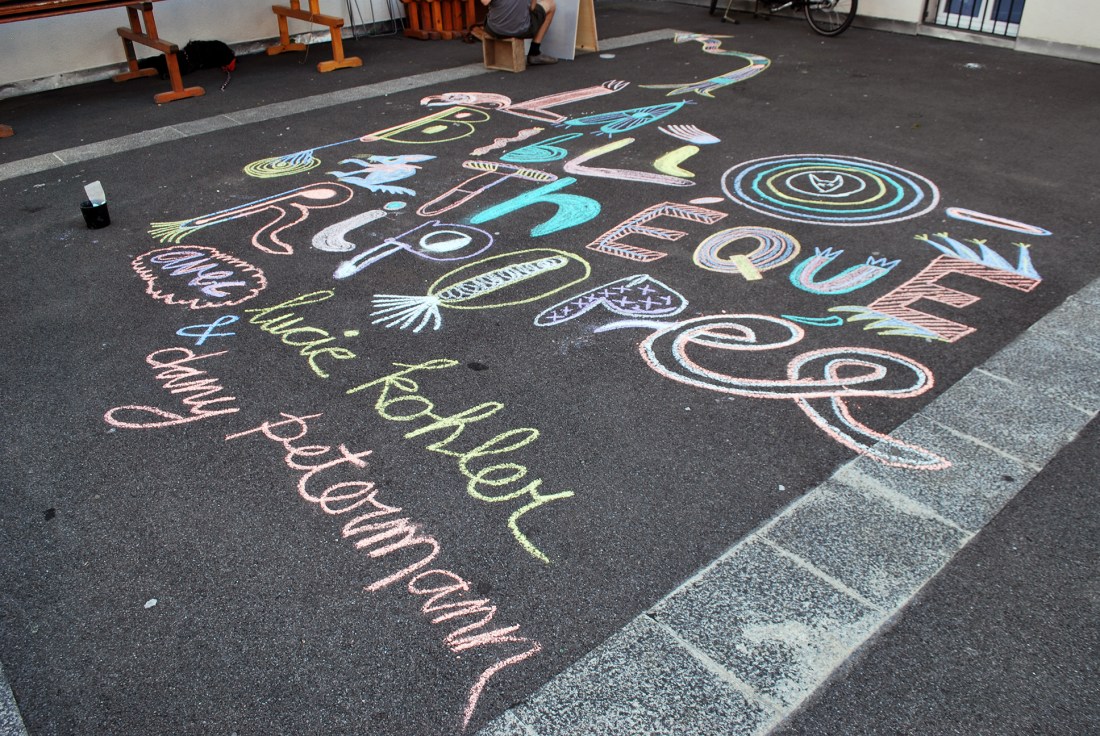 BibLiO
ThÈQUE
RipOPée
avec
lucie kohler
& dany petermann